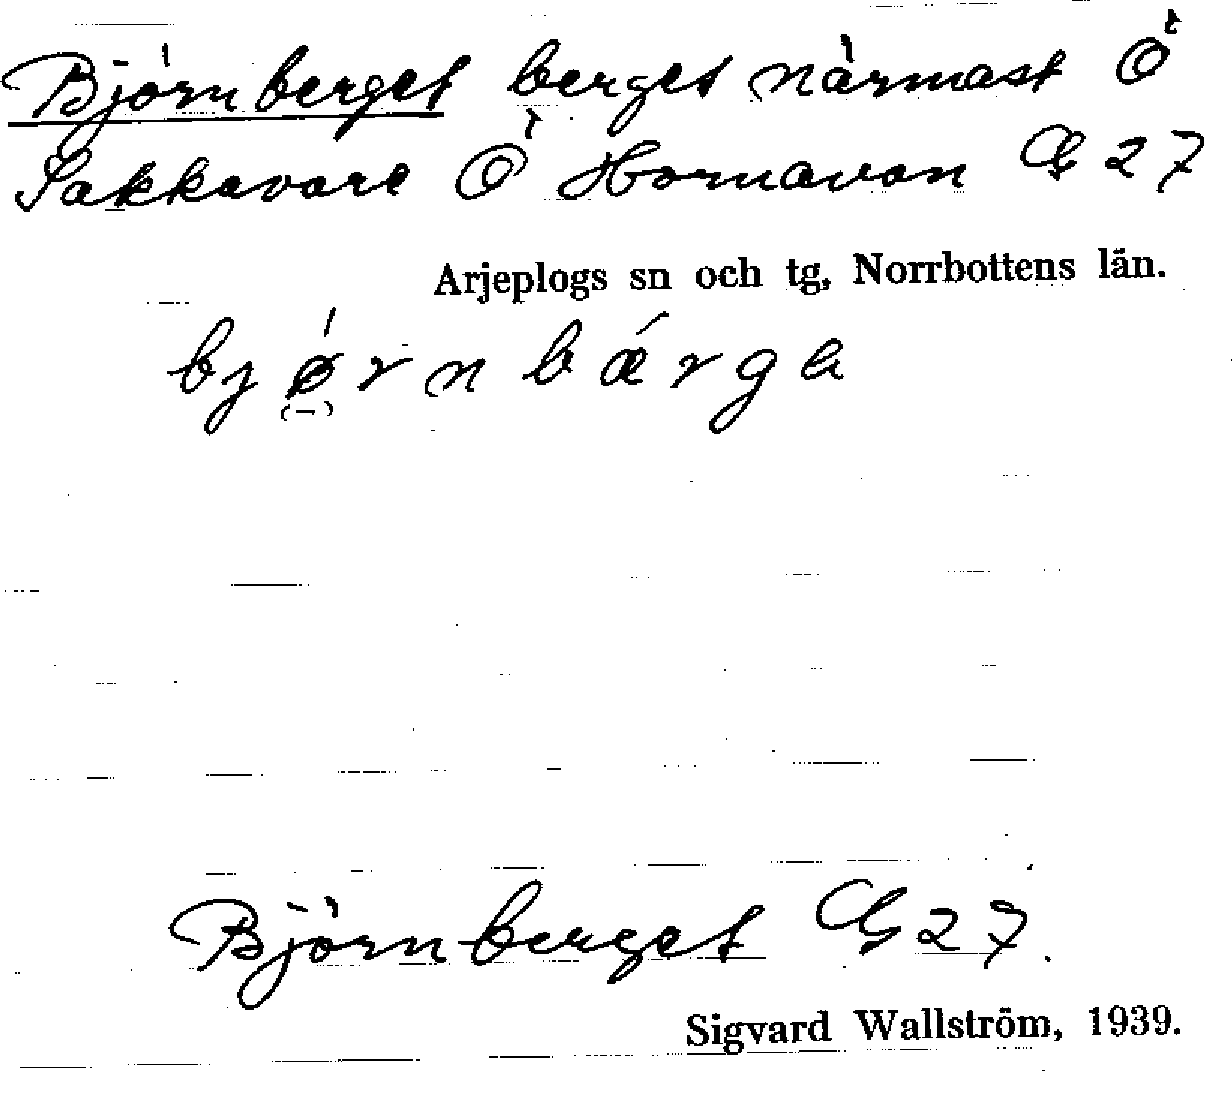 Björnberget berget närmast Ö
Sakkavare Ö Hornavan G 27
Arjeplogs sn och tg, Norrbottens län.
bjørnbǽrge
Björnberget G 27.
Sigvard Wallström, 1939.